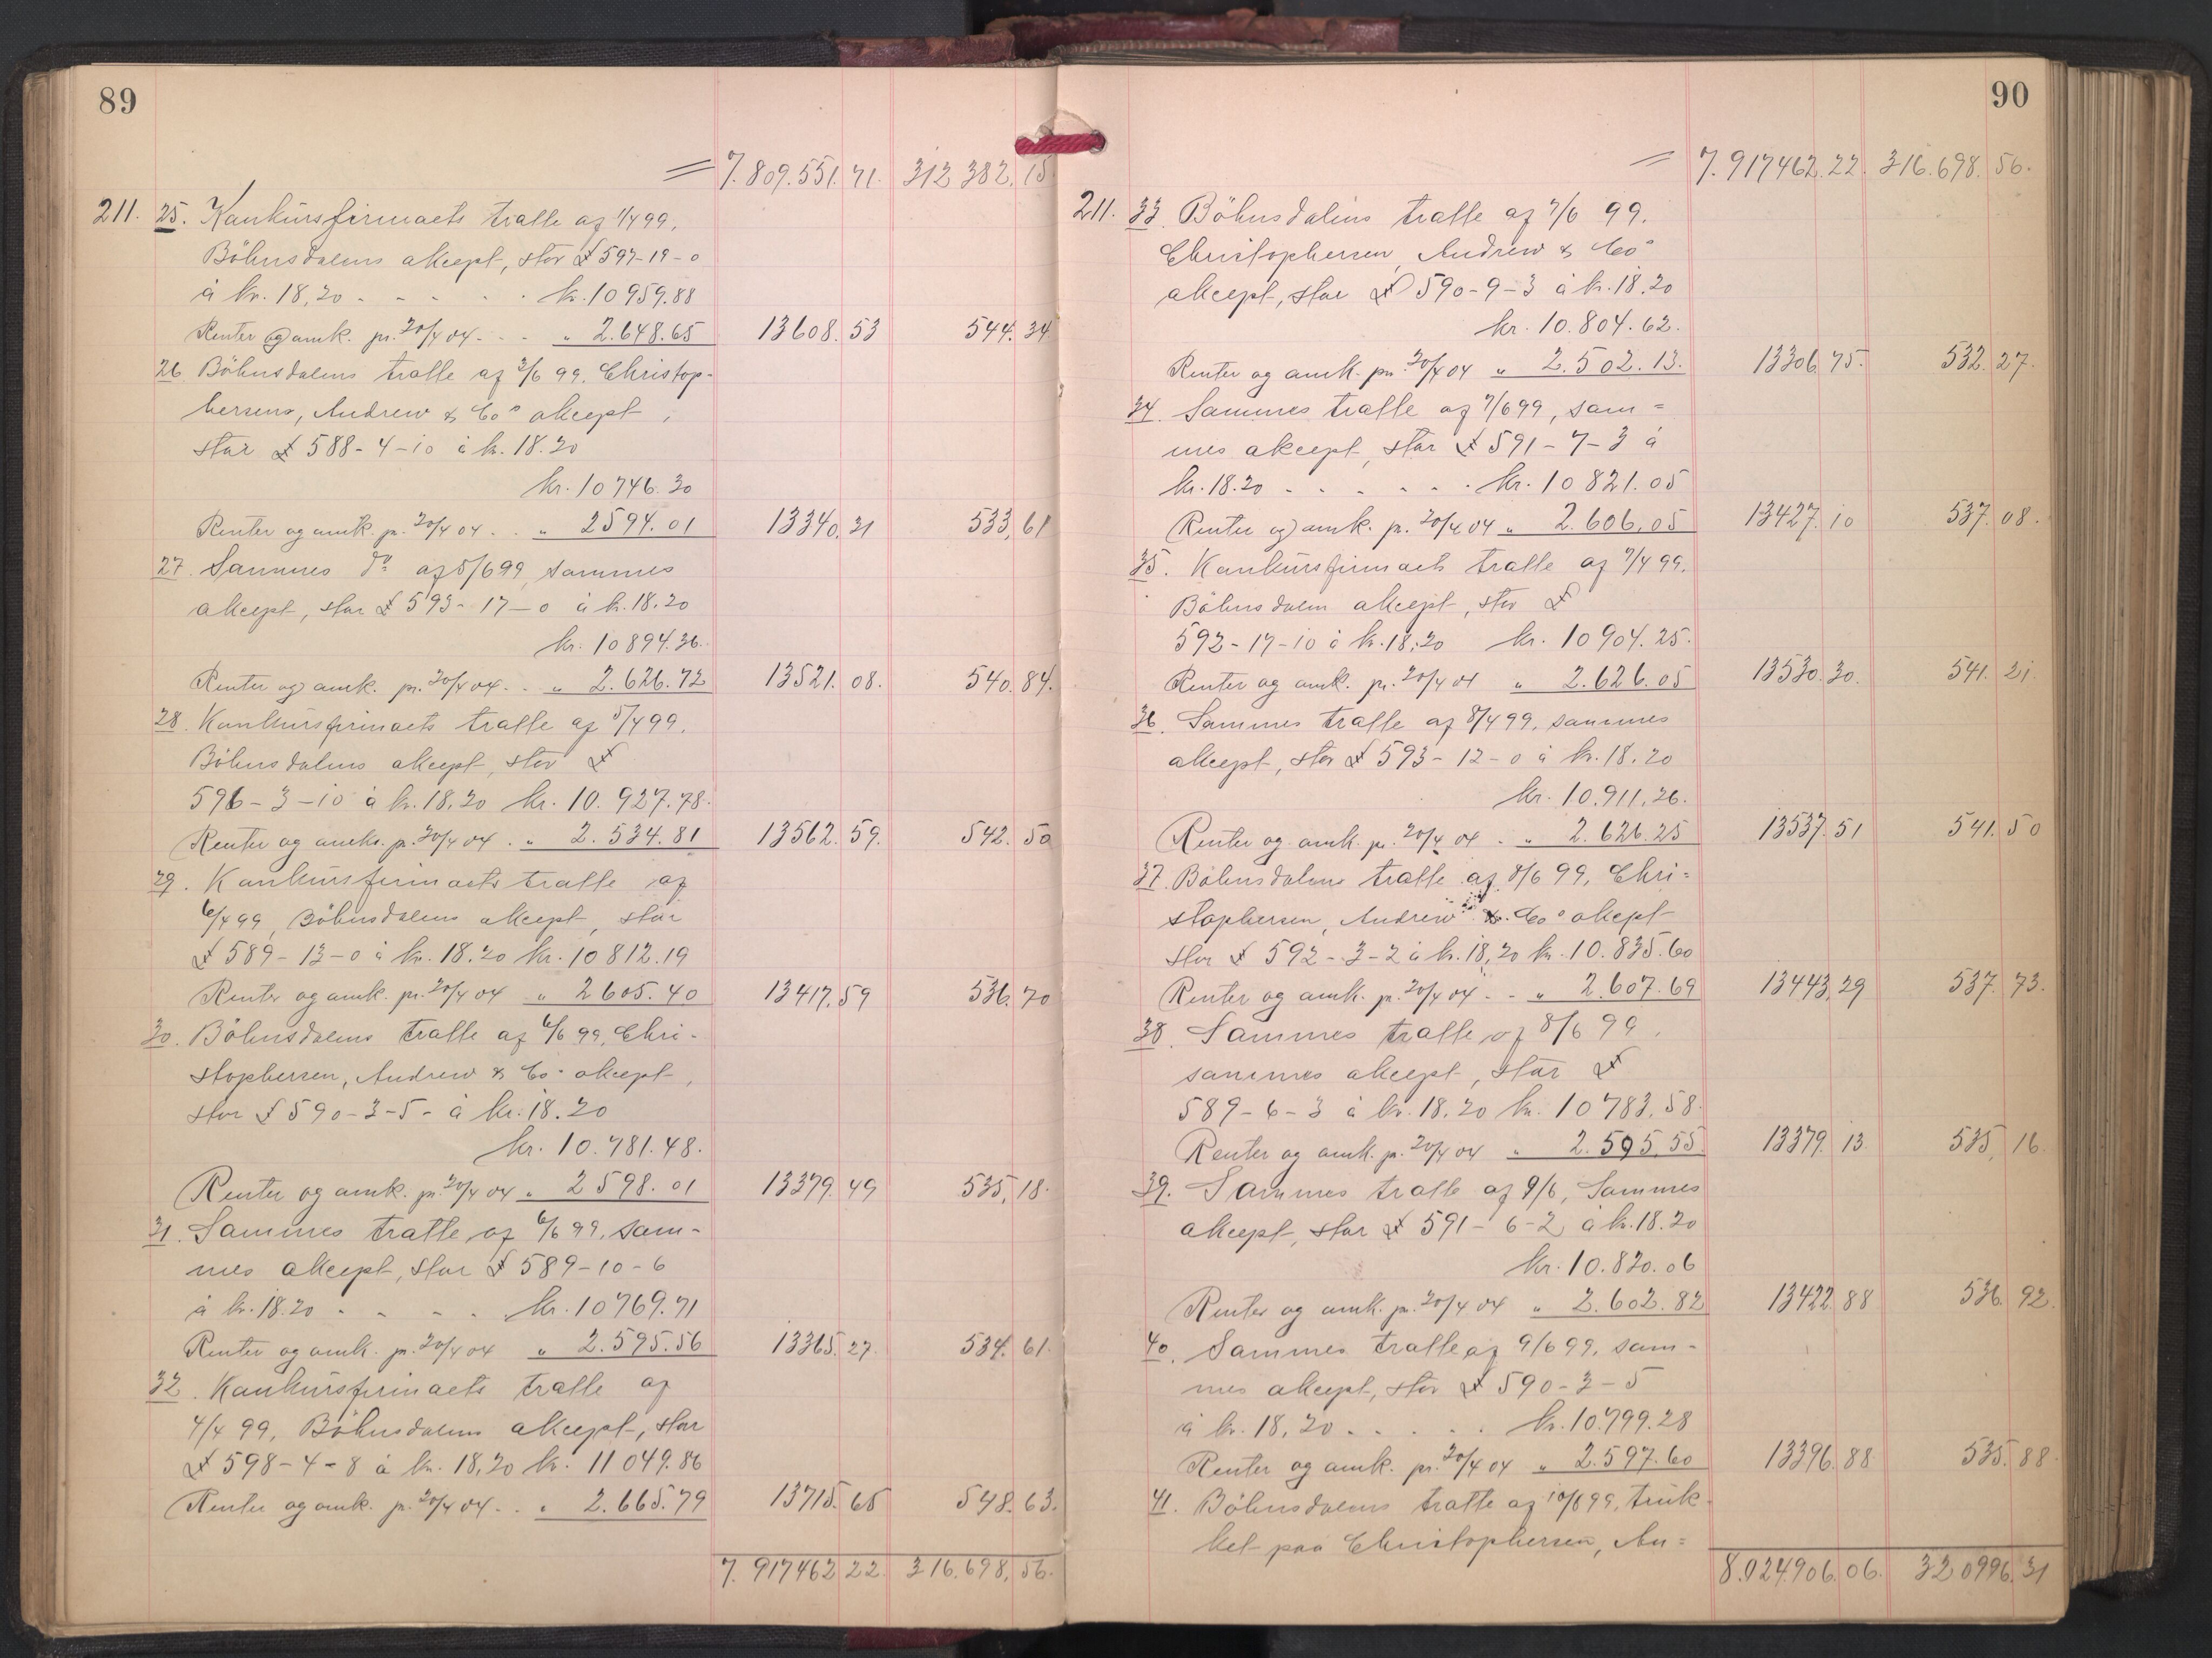 89
= 7.809.551.71. 312 382.15
211. 25. Konkursfirmaets tratte af 1/4 99,
Böhnsdalens aksept, stor £ 597-19-0
à kr. 18,20 - - - - kr. 10 959.88
Renter og omk. pr. 30/4 04 - - „ 2.648.65 13608.53 544.34
26. Böhnsdalens tratte af 3/6 99. Christop-
hersens, Andrew & Co° aksept,
stor £ 588-4-10 à kr. 18.20
kr. 10 746.30
Renter og omk. pr. 30/4 04 . . „ 2594.01 13340.31 533,61
27. Sammes d° af 5/6 99, sammes
aksept, stor £ 593-17-0 à kr. 18.20
kr. 10 894.36.
Renter og omk. pr. 30/4 04 . . „ 2.626.72 13521.08. 540.84.
28. Konkursfirmaets tratte af 5/4 99.
Böhnsdalens aksept, stor £
596-3-10 à kr. 18,20 kr. 10.927.78.
Renter og omk. pr. 30/4 04 . „ 2.534.81 13562.59. 542.50
29. Konkursfirmaets tratte af
6/4 99, Böhnsdalens aksept, stor
£ 589-13-0 à kr. 18.20 kr. 10 812.19
Renter og omk. pr. 30/4 04 „ 2605.40 13417.59 536.70
30. Böhnsdalens tratte af 6/6 99, Chri-
stophersen, Andrew & Co. aksept,
stor £ 590-3-5- à kr. 18.20
kr. 10.781.48.
Renter og omk. pr. 30/4 04 „ 2598.01 13379.49 535,18.
31. Sammes tratte af 6/6 99, sam-
mes aksept, stor £ 589-10-6
à kr. 18.20 - - - - kr. 10769.71
Renter og omk. pr. 30/4 04 „ 2.595.56 13365.27. 534.61.
32. Konkursfirmaets tratte af
4/4 99, Böhnsdalens aksept, stor
£ 598-4-8 à kr. 18,20 kr. 11 049.86
Renter og omk. pr. 30/4 04 . . „ 2.665.79 13715.65 548.63.
7.917462 22. 316.698,56.
90
= 7.917462.22. 316.698.56.
211. 33. Böhnsdalens tratte af 7/6 99.
Christophersen, Andrew & Co°
aksept, stor £ 590-9-3 à kr. 18.20
kr. 10.804.62.
Renter og omk. pr. 30/4 04 „ 2.502.13. 13306.75. 532.27.
34. Sammes tratte af 7/6 99, sam=
mes aksept, stor £ 591-7-3 à
kr. 18.20 - - - - - kr. 10 821.05
Renter og omk. pr. 30/4 04 „ 2.606.05 13427.10 537.08.
35. Konkursfirmaets tratte af 7/4 99.
Böhnsdalen aksept, stor £
592-17-10 à kr. 18.20 kr. 10904.25.
Renter og omk. pr. 30/4 04 „ 2.626.05 13530.30. 541.21
36. Sammes tratte af 8/4 99. sammes
aksept, stor £ 593-12-0 à kr. 18.20
kr. 10.911.26.
Renter og omk. pr. 30/4 04 . „ 2.626.25 13537.51 541.50
37. Böhnsdalens tratte af 8/6 99, Chri=
stophersen, Andrew & Co° aksept
stor £ 592-3-2 à kr. 18,20 kr. 10.835.60
Renter og omk. pr. 30/4 04 - - „ 2.607.69 13443.29 537.73.
38. Sammes tratte af 8/6 99.
sammes aksept, stor £
589-6-3 à kr. 18.20 kr. 10783.58.
Renter og omk. pr. 30/4 04 „ 2.595.55 13379.13 535,16.
39. Sammes tratte af 9/6, Sammes
aksept, stor £ 591-6-2 à kr. 18.20
kr. 10.820.06
Renter og omk. pr. 30/4 04 „ 2.602.82 13422.88 536.92.
40. Sammes tratte af 9/6 99. sam-
mes aksept, stor £ 590-3-5
à kr. 18,20 . . . . . kr. 10.799.28
Renter og omk. pr. 30/4 04 „ 2.597.60 13396.88 535.88.
41. Böhnsdalens tratte af 10/6 99, truk-
ket paa Christophersen, An=
8.024906.06. 320996.31